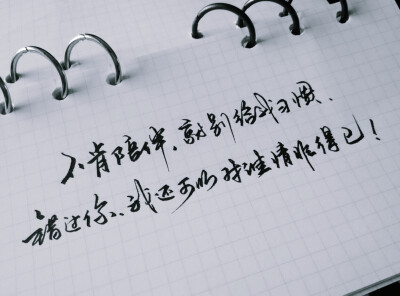 不肯陪伴，就别给我习惯，
错过你，我还可以对谁情非得已！